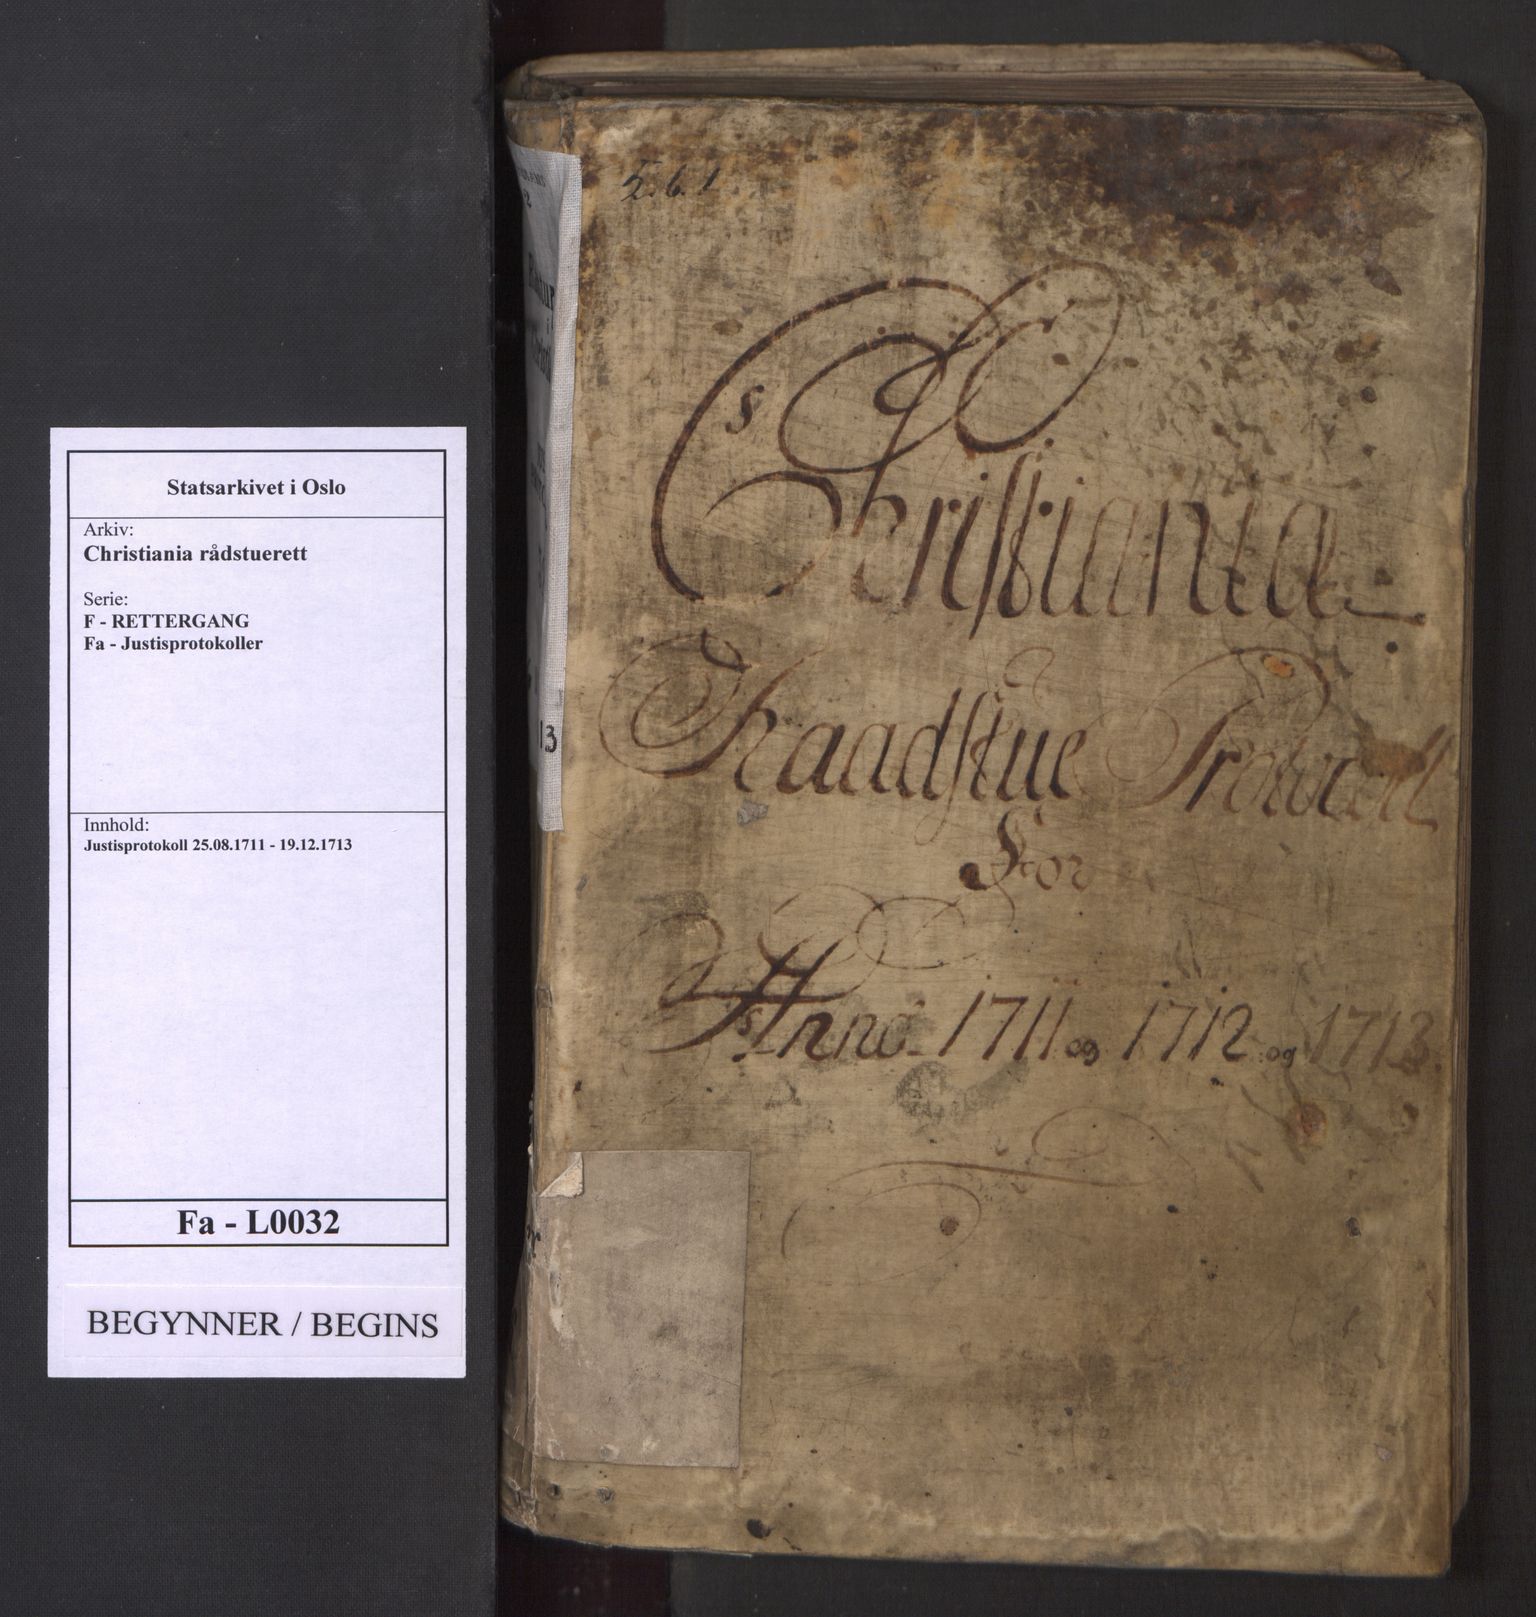 Statsarkivet i Oslo
Arkiv:
Christiania rådstuerett
Serie:
F - RETTERGANG
Fa - Justisprotokoller
Innhold:
Justisprotokoll 25.08.1711 - 19.12.1713
Fa - L0032
BEGYNNER / BEGINS
5.6.1
13
Christiania
Raadstue Protocoll
For
Anno 1711 og 1712 og 1713.